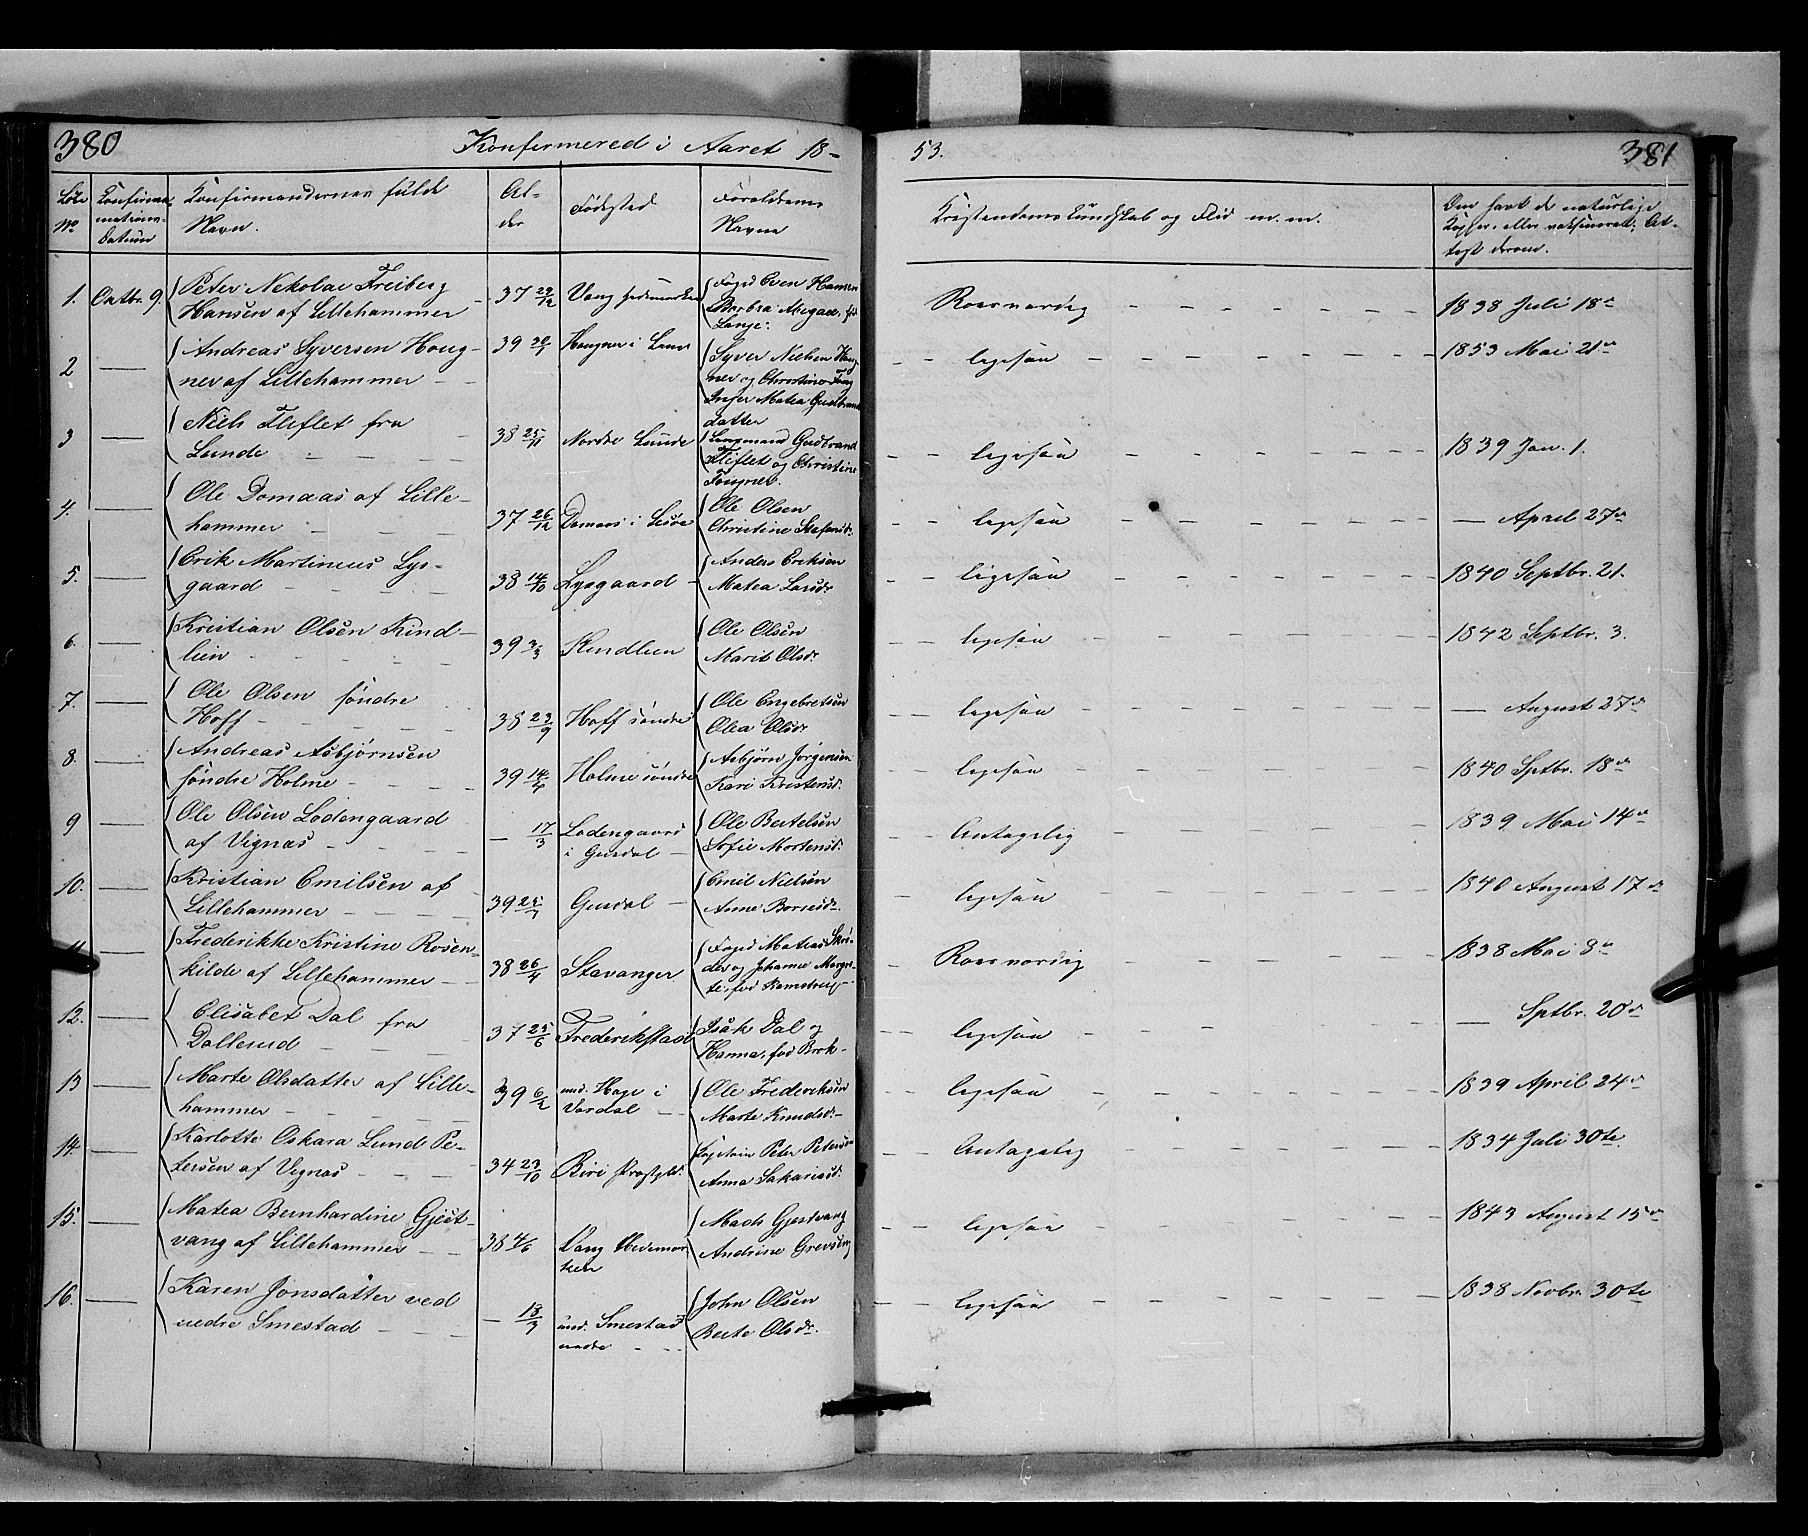 380
Konfirmered i Aaret 18-
53.
381
Løbe No
Konfirmationsdatum
Konfirmandernes fulde Navn.
Alder
Fødested
Forældrenes Navne
Kristendomskundskab og Flid m. m.
Om havt de naturlige
Kopper, eller vaksineret; At-
test derom.
1. Octbr. 9. Peter Nikolai Freiberg
Hansen af Lillehammer 37 29/12 Vang Hedemarken Foged Even Hansen
Barbra fød
Lange.
Roesværdig 1838 Juli 18de
2 — Andreas Syversen Houg-
ner af Lillehammer 39 20/1 Hougner i Syver Nielsen Houg
ner og Christine Foug
Matea Gudbrands
datter
ligesaa 1853 Mai 21de
3 — Niels Fliflet fra
Lunde 38 25/11 Nordre Lunde Lensmand Gudbrand
Fliflet og Christine
Fougner.
ligesaa 1839 Jan. 1.
4. — Ole Domaas af Lille-
hammer 37 26/12 Domaas i Lesøe Ole Olsen
Christine Stefansdr.
ligesaa — April 27de
5. — Erik Martineus Lys-
gaard 38 14/10 Lysgaard Anders Eriksen
Matea Larsdr
ligesaa 1840 Septbr. 21.
6. — Kristian Olsen Kind-
lien 39 3/3 Kindlien Ole Olsen
Marit Olsdr
ligesaa 1842 Septbr. 3.
7. — Ole Olsen søndre
Hoff 38 23/9 Hoff søndre Ole Engebretsen
Olea Olsdr
ligesaa — August 27de
8. — Andreas Asbjørnsen
søndre Holme 39 14/4 Holme søndre Asbjørn Jørgensen
Kari Kristensd.
ligesaa 1840 Sptbr. 18de
9 — Ole Olsen Lodengaard
af Vignas — 17/3 Lodengaard
i Gusdal Ole Bertelsen
Sofie Mortensd.
Antagelig 1839 Mai 14de
10. — Kristian Emilsen af
Lillehammer 39 25/7 Gusdal Emil Nielsen
Anne
ligesaa 1840 August 17de
11 — Frederikke Kristine Rosen-
kilde af Lillehammer 38 26/4 Stavanger Foged Matias Skrø-
der og Johanne Margre-
te, fød Kamstrup
Roesværdig 1838 Mai 8de
12. — Elisabet Dal fra
Dallerud 37 25/6 Frederikstad Isak Dal og
Hanna, fød Brok-
ligesaa — Sptbr. 20de
13 — Marte Olsdatter af Lille-
hammer 39 6/2 und. Hage i
Vardal Ole Frederiksen
Marte Knudsdr.
ligesaa 1839 April 24de
14. — Karlotte Oskara Lund Pe-
tersen af Vignas 34 23/10 Biri Præstgld. Kaptein Peter Petersen
Anna Sakariasd.
Antagelig 1834 Juli 30te
15. — Matea Bernhardine Gjest-
vang af Lillehammer 38 4/6 Vang Hedemar-
ken Mads Gjestvang
Andrine Grevseng
ligesaa 1843 August 15de
16. — Karen Jonsdatter ved
nedre Smestad — 18/9 und. Smestad
nedre John Olsen
Berte Olsdr.
ligesaa 1838 Novbr. 30te